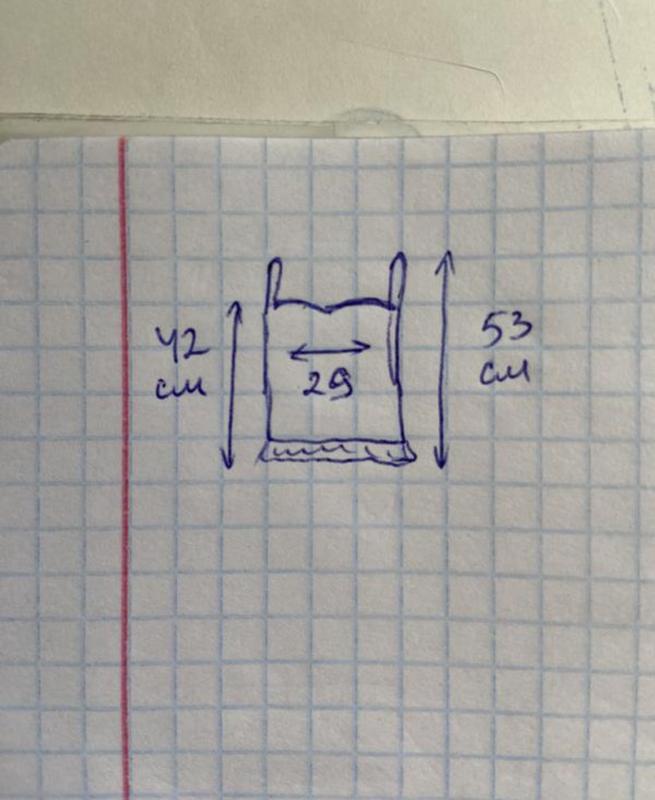 42
см
29
53
см